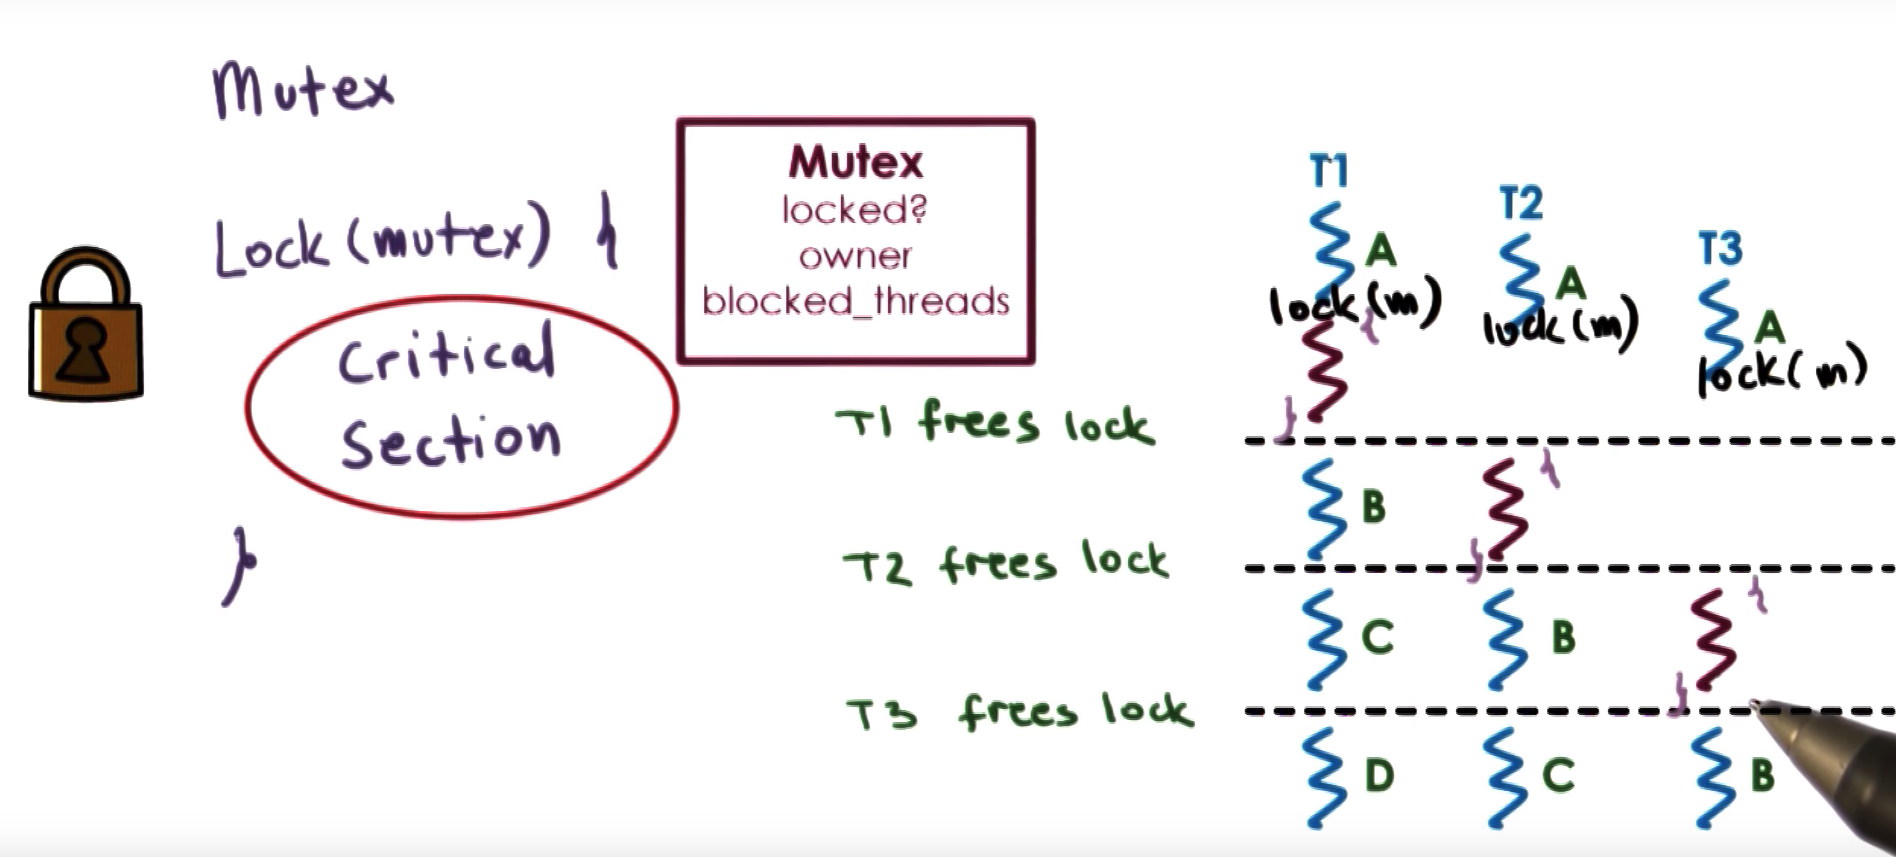 Mutex
Lock (mutex) {
Critical
Section
}
Mutex
locked?
owner
blocked_threads
T1
A
lock(m)
{
}
T2
A
lock(m)
T3
A
lock(m)
T1 frees lock
B
{
}
T2 frees lock
C
B
{
}
T3 frees lock
D
C
B